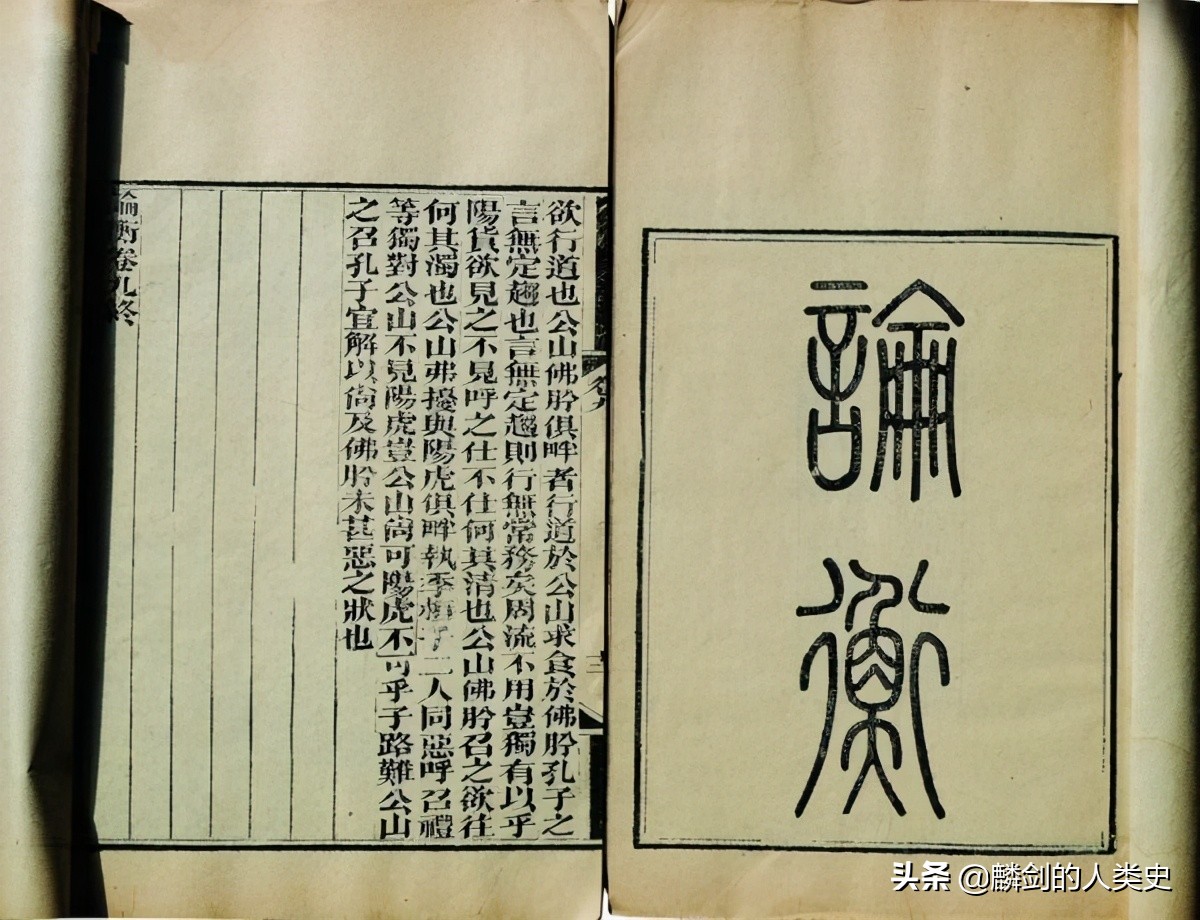 論衡
欲行道也公山佛肸俱畔者行道於公山求食於佛肸孔子之
言無定趨也言無定趨則行無常務矣周流不用豈獨有以乎
陽貨欲見之不見呼之仕不仕何其清也公山佛肸召之欲往
何其濁也公山弗擾與陽虎俱畔執季桓子二人同惡呼召禮
等獨對公山不見陽虎豈公山尚可陽虎不可乎子路難公山
之召孔子宜解以尚及佛肸未甚惡之狀也
論衡卷九終
卷九
头条 @麟剑的人类史